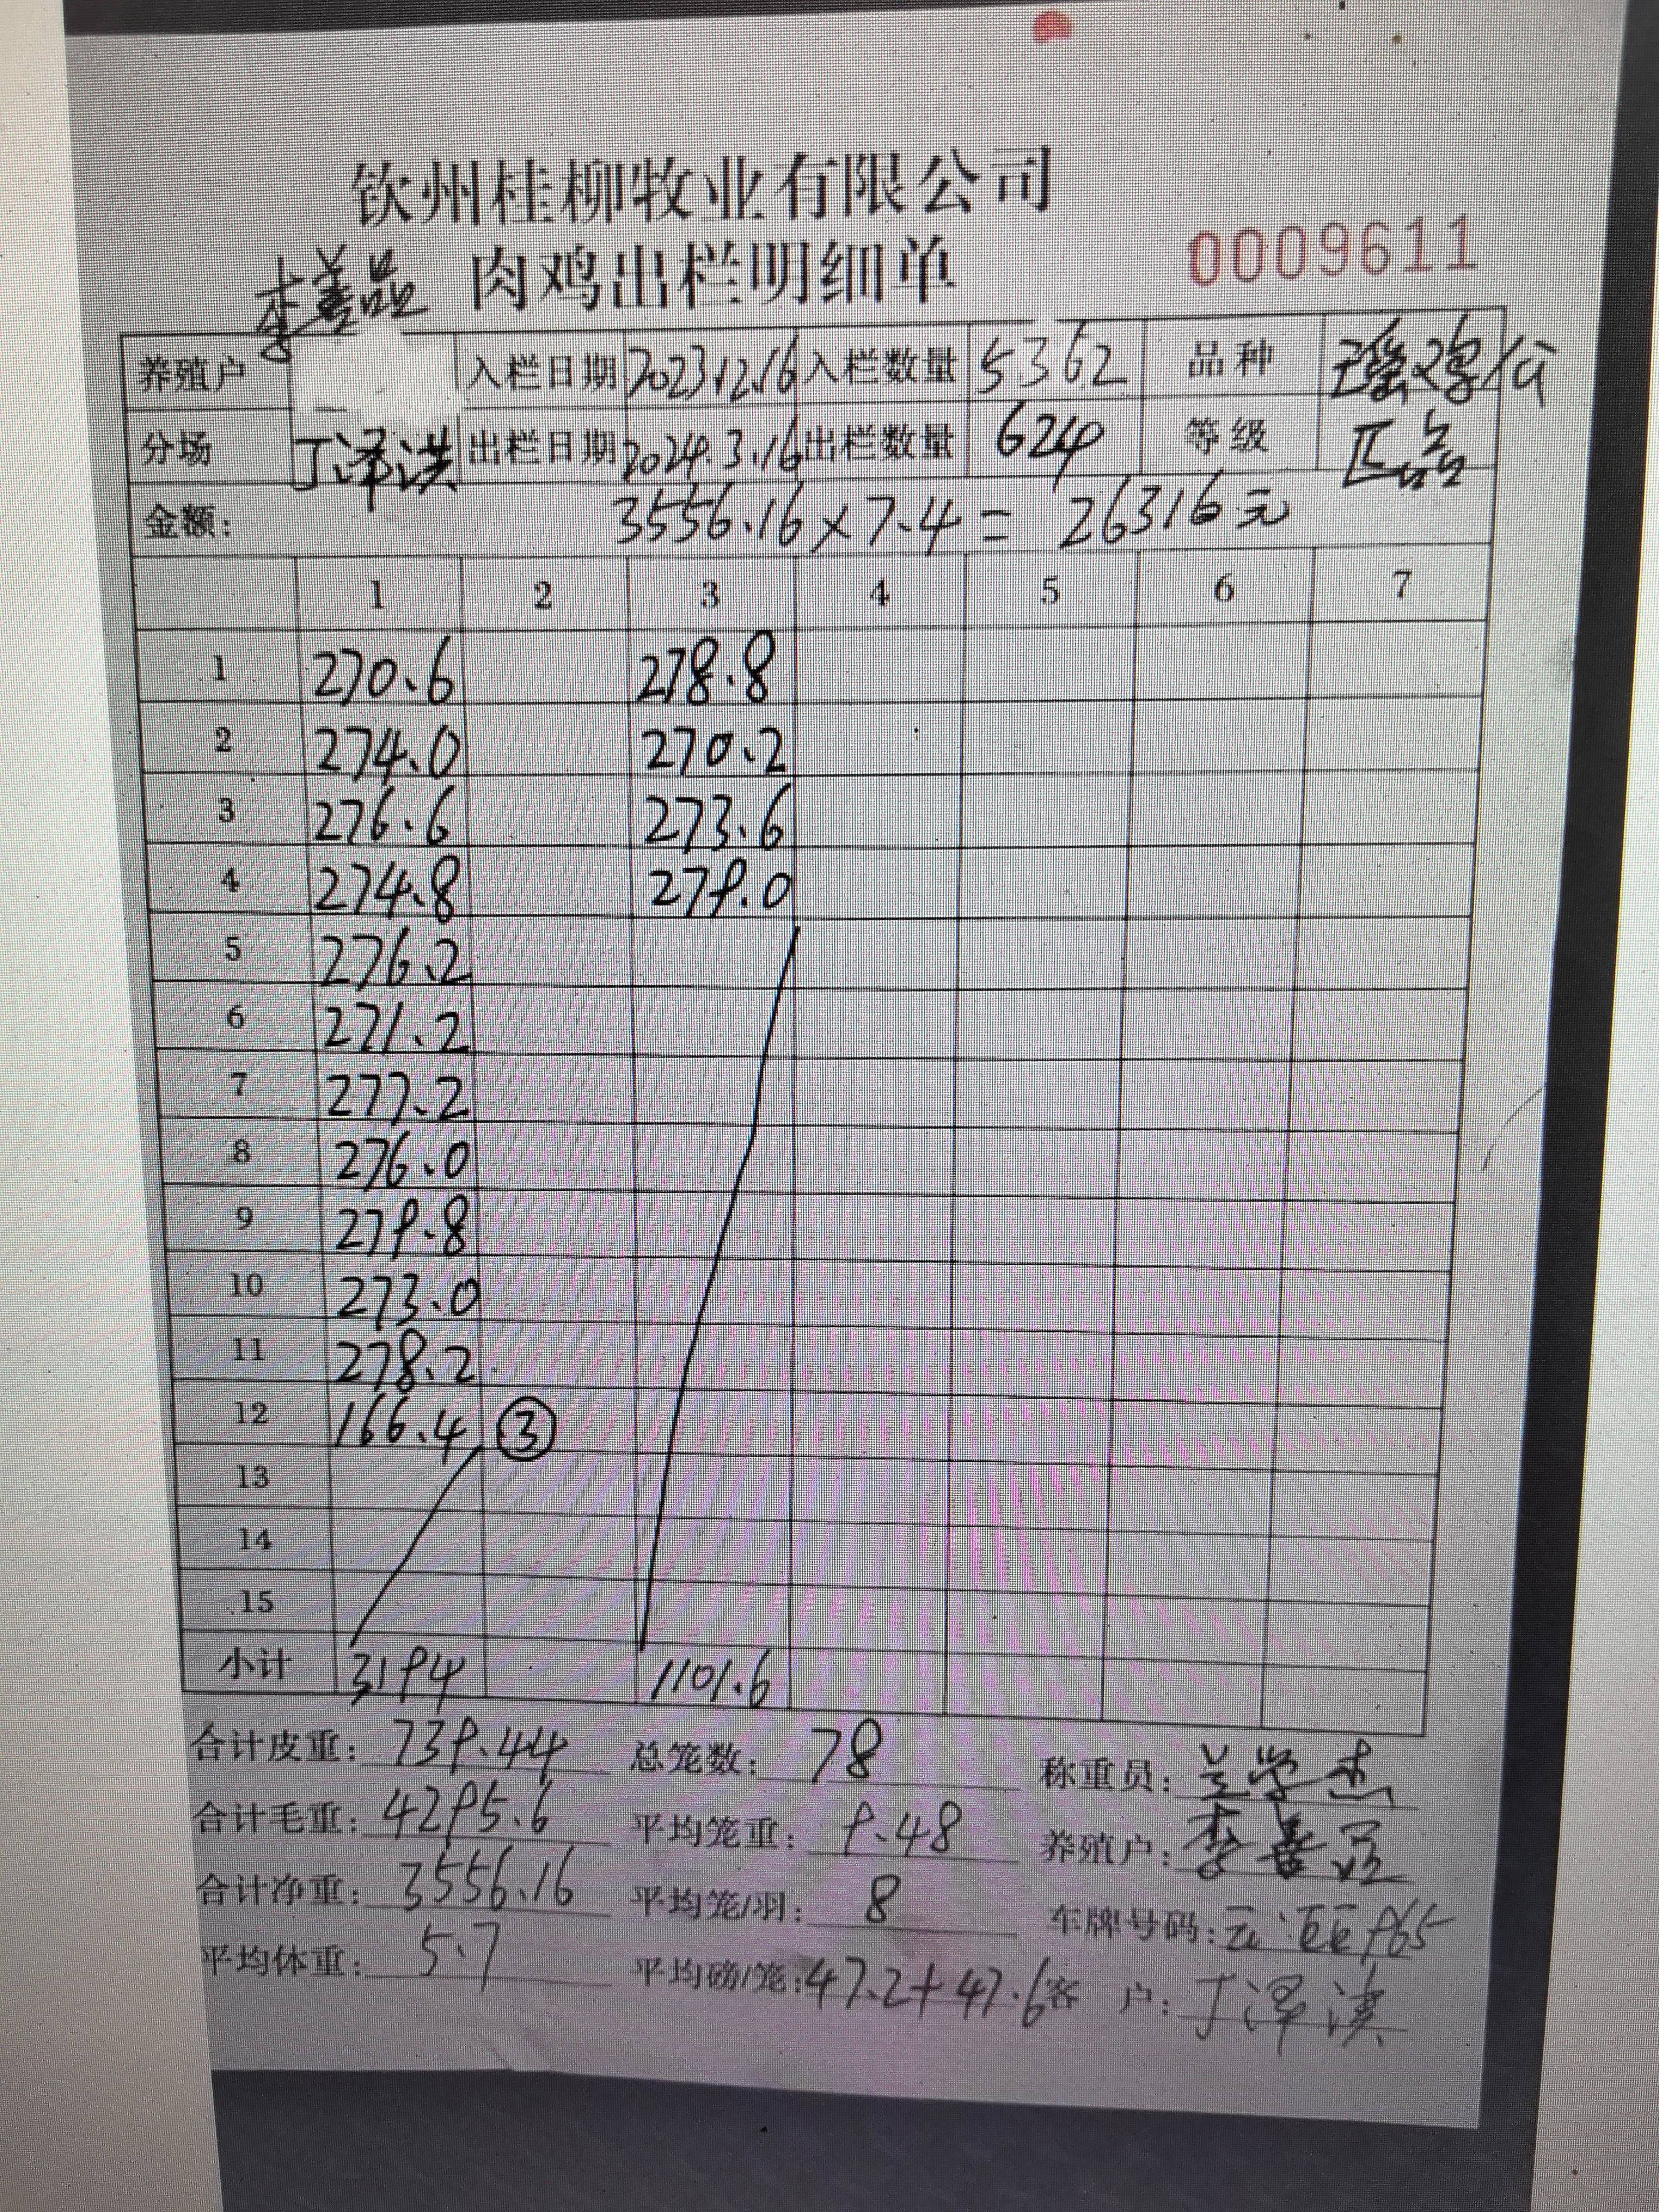 钦州桂柳牧业有限公司
肉鸡出栏明细单 0009611
养殖户 入栏日期 2023.12.16 入栏数量 5362 品种 瑶鸡/公
分场 丁泽洪 出栏日期 2024.3.16 出栏数量 624 等级 正品
金额: 3556.16×7.4= 26316元
1 2 3 4 5 6 7
1 270.6 278.8
2 274.0 270.2
3 276.6 273.6
4 274.8 279.0
5 276.2
6 271.2
7 277.2
8 276.0
9 279.8
10 273.0
11 278.2
12 166.4 ③
13
14
15
小计 3194 1101.6
合计皮重: 739.44 总笼数: 78 称重员:
合计毛重: 4295.6 平均笼重: 9.48 养殖户:
合计净重: 3556.16 平均笼/羽: 8 车牌号码:
平均体重: 5.7 平均磅/笼: 47.2+47.6 客 户: 丁泽洪